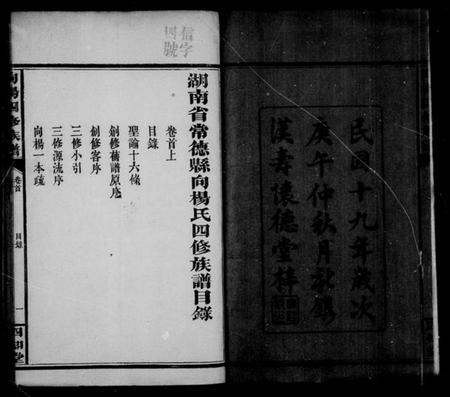 民國十九年歲次
庚午仲秋月新鐫
漢壽懷德堂梓
信字
四號
湖南省常德縣向楊氏四修族譜目錄
卷首上
目錄
聖諭十六條
創修舊譜原序
創修客序
三修小引
三修源流序
向楊一本疏
向楊四修族譜
卷首
目錄
一
四知堂